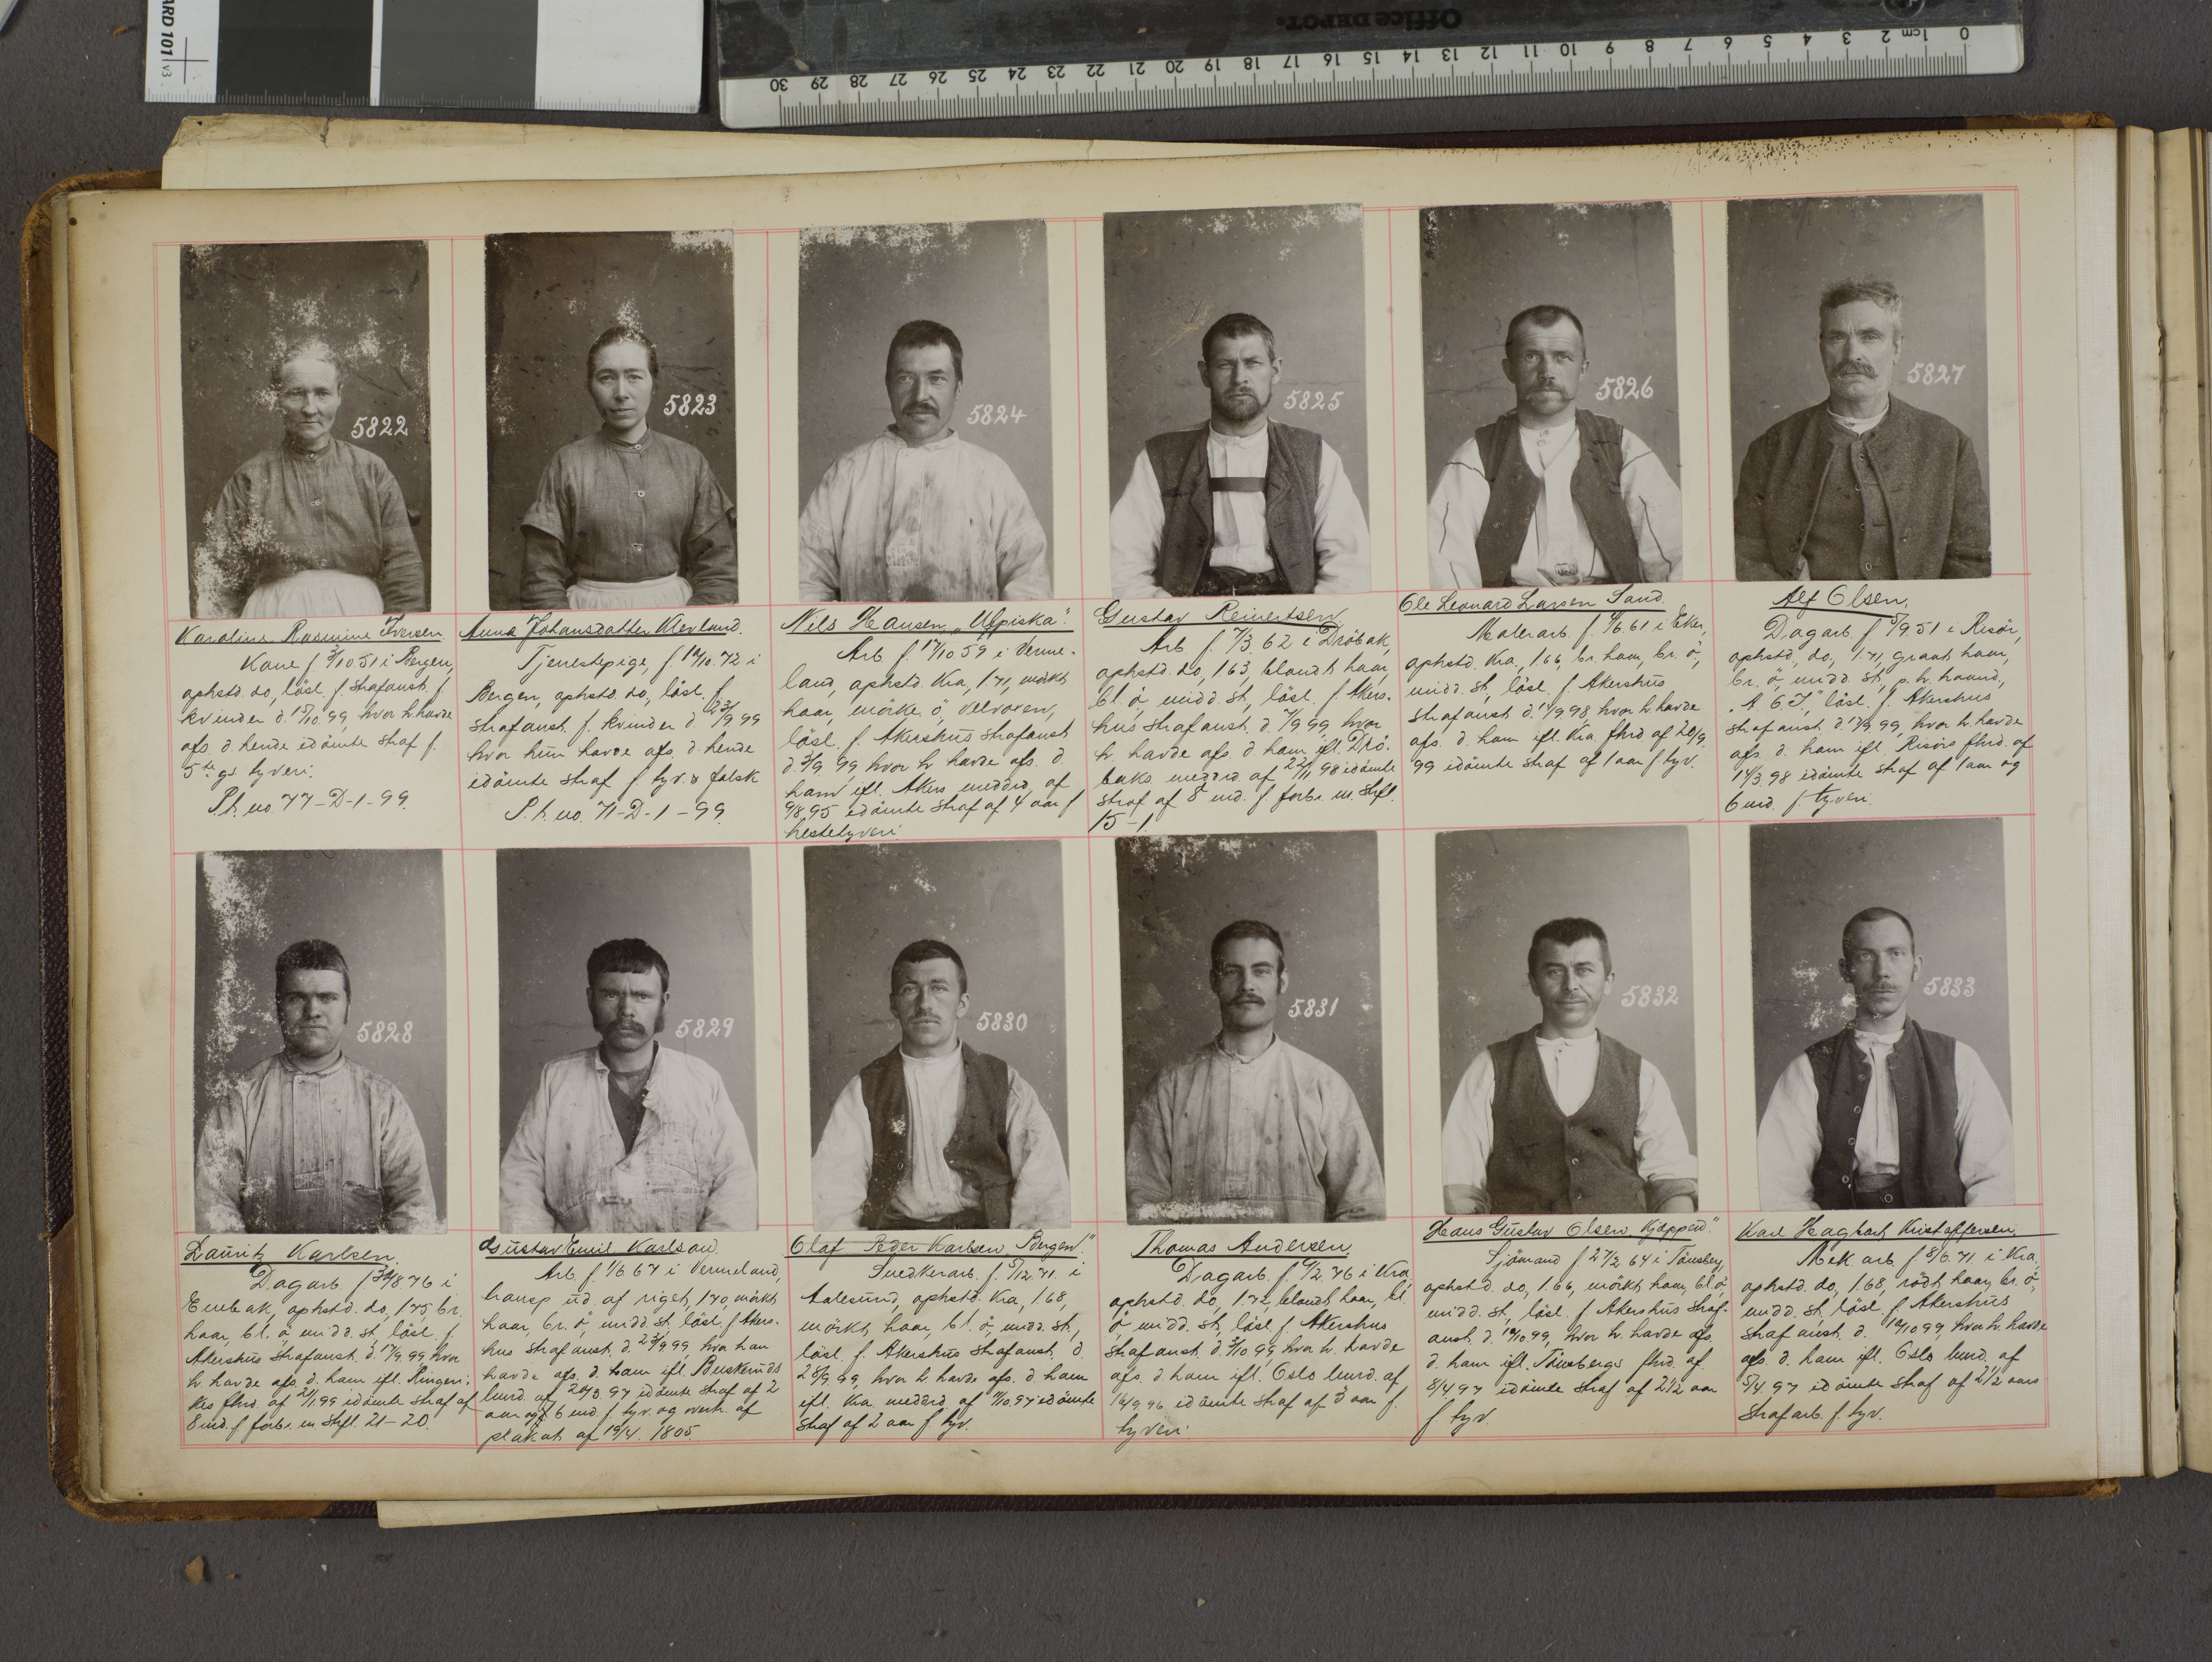 ARD 101 v3
Office DEPOT.
0 1cm 2 3 4 5 6 7 8 9 10 11 12 13 14 15 16 17 18 19 20 21 22 23 24 25 26 27 28 29 30
5822
Karoline Rasmine Iversen
Kone f. 3/10.51 i Bergen,
ophstd. do, lösl. f. strafanst. f.
kvinder d. 15/10.99, hvor h. havde
afs. d. hende idömte straf f.
5te gs tyveri.
P.h. no 77-D-1-99.
5823
Anna Johansdatter Klevland.
Tjenestepige, f. 12/10.72 i
Bergen, ophstd. do, lösl. f.
strafanst. f. kvinder d. 23/9 99
hvor hun havde afs. d. hende
idömte straf f. tyv. & falsk
P.h. no. 71-D-1-99.
5824
Nils Hansen, "Ulpiska".
Arb. f. 17/10 59 i Verme-
land, ophstd. Kra, 1.71, mörkt
haar, mörke ö,
lösl. f. Akershus strafanst.
d. 3/9 99, hvor h. havde afs. d.
ham ifl. Akers meddrd. af
9/8.95 idömte straf af 4 aar f.
hestetyveri
5825
Gustav Reinertsen
Arb. f. 7/3.62 i Dröbak,
ophstd. do, 1.63, blondt haar,
bl. ö, midd. st, lösl. f. Akers-
hus strafanst. d. 7/9 99, hvor
h. havde afs. d. ham ifl. Drö-
baks meddrd af 22/11 98 idömte
straf af 8 md. f. forbr. m. Strfl.
15-1
5826
Ole Leonard Larsen Sand.
Malerarb. f. 9/6.61 i Eker,
ophstd. Kra, 1.66, br. haar, br. ö,
midd. st, lösl. f. Akershus
strafanst. d. 11/9 98, hvor h. havde
afs. d. ham ifl. Kra fhrd af 20/9
99 idömte straf af 1 aar f. tyv.
5827
Alf Olsen,
Dagarb. f. 5/9.51 i Risör,
ophstd., do, 1.71, graat haar,
br. ö, midd. st, p. h. haand.,
"A 6 I", lösl. f. Akershus
strafanst. d. 12/9 99, hvor h. havde
afs. d. ham ifl. Risörs fhrd. af
14/3.98 idömte straf af 1 aar og
6 md. f. tyveri.
5828
Lauritz Karlsen.
Dagarb. f. 30/8 76 i
Enebak, ophstd. do, 1.75, br.
haar, bl. ö, midd. st, lösl. f.
Akershus strafanst. d. 17/9.99 hvor
h. havde afs. d. ham ifl. Ringeri-
kes fhrd. af 21/1.99 idömte straf af
8 md. f. forbr. m. Strfl. 21-20.
5829
Gustav Emil Karlson.
Arb. f. 1/6 67 i Vermeland,
transp. ud af riget, 1.70, mörkt
haar, br. ö, midd. st, lösl. f. Akers-
hus strafanst. d. 23/9 99, hvor han
havde afs. d. ham ifl. Buskeruds
lmrd. af 20/3 97 idömte straf af 2
aar og 6 md. f. tyv. og overtr. af
plakat af 19/4. 1805
5830
Olaf Peder Karlsen, "Bergen".
Snedkerarb. f. 5/12.71. i
Aalesund, ophstd. Kra, 1.68,
mörkt haar, bl. ö, midd. st,
lösl. f. Akershus strafanst. d.
28/9 99, hvor h. havde afs. d. ham
ifl. Kra. meddrd. af 11/10.97 idömte
straf af 2 aar f. tyv.
5831
Thomas Andersen,
Dagarb. f. 9/2.76 i Kra,
ophstd. do, 1.72, blondt haar, bl.
ö, midd. st, lösl. f. Akershus
strafanst. d. 3/10 99, hvor h. havde
afs. d. ham ifl. Oslo lmrd. af
16/9.96 idömte straf af 3 aar f.
tyveri
5832
Hans Gustav Olsen, "Kjeppen"
Sjömand f. 27/2 64 i Tönsberg,
ophstd. do, 1.66, mörkt haar, bl. ö,
midd. st, lösl. f. Akershus straf-
anst. d. 10/10 99, hvor h. havde afs.
d. ham ifl. Tönsbergs fhrd. af
8/4 97 idömte straf af 2 1/2 aar
f. tyv.
5833
Karl Hagbart Kristoffersen
Mek. arb. f. 8/6.71 i Kra,
ophstd. do, 1.68, rödt haar, br. ö,
midd. st, lösl. f. Akershus
strafanst. d. 10/10 99, hvor h. havde
afs. d. ham ifl. Oslo lmrd. af
5/4.97 idömte straf af 2 1/2 aars
strafarb. f. tyv.